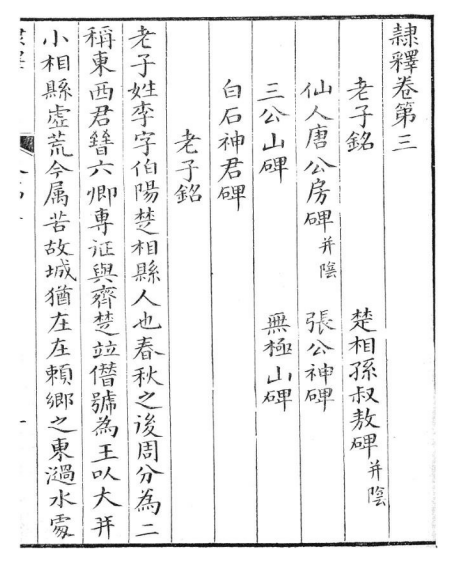 隸釋卷第三
老子銘 楚相孫叔敖碑并陰
仙人唐公房碑并陰 張公神碑
三公山碑 無極山碑
白石神君碑
老子銘
老子姓李字伯陽楚相縣人也春秋之後周分為二
稱東西君晉六卿専征與齊楚竝僭號為王以大并
小相縣虛荒今属苦故城猶在在賴鄉之東濄水處